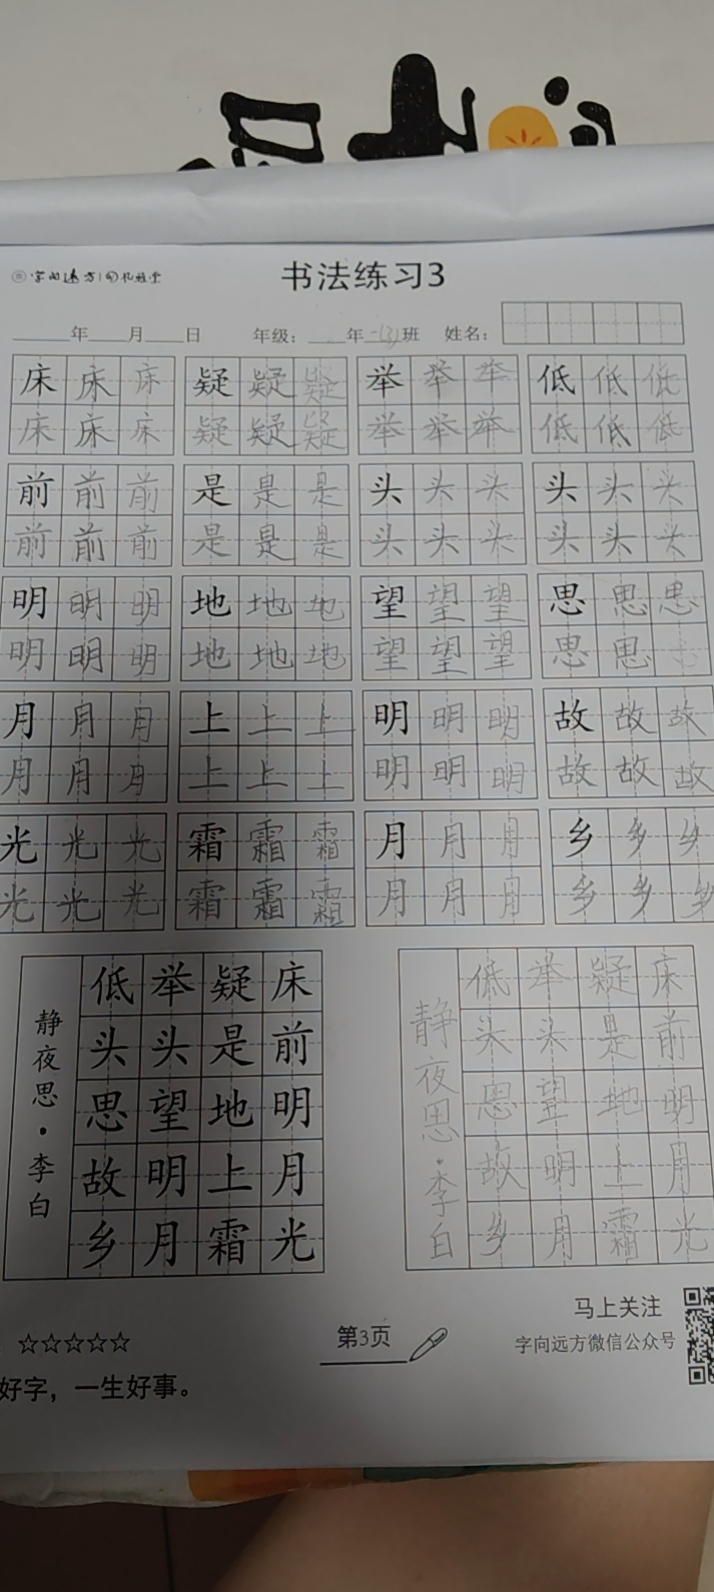 字向远方
书法练习3
年 月 日 年级: 年一(3)班 姓名:
床床床 疑疑疑 举举举 低低低
床床床 疑疑疑 举举举 低低低
前前前 是是是 头头头 头头头
前前前 是是是 头头头 头头头
明明明 地地地 望望望 思思思
明明明 地地地 望望望 思思
月月月 上上上 明明明 故故故
月月月 上上上 明明明 故故故
光光光 霜霜霜 月月月 乡乡乡
光光光 霜霜霜 月月月 乡乡乡
床前明月光
疑是地上霜
举头望明月
低头思故乡
静夜思·李白
床前明月光
疑是地上霜
举头望明月
低头思故乡
静夜思·李白
☆☆☆☆☆
好字，一生好事。
第3页
马上关注
字向远方微信公众号